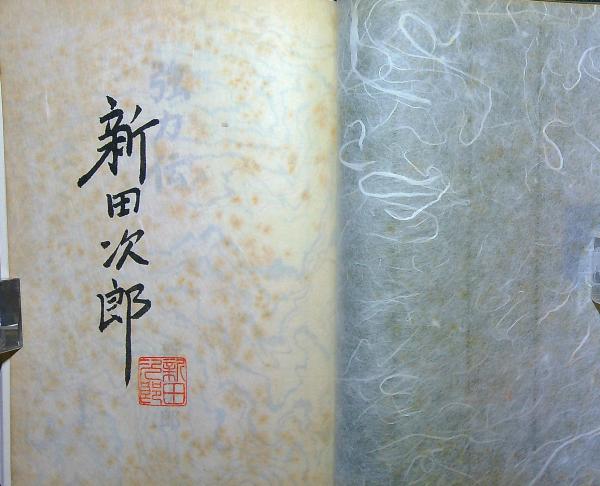 新田次郎
強力伝
新田
次郎